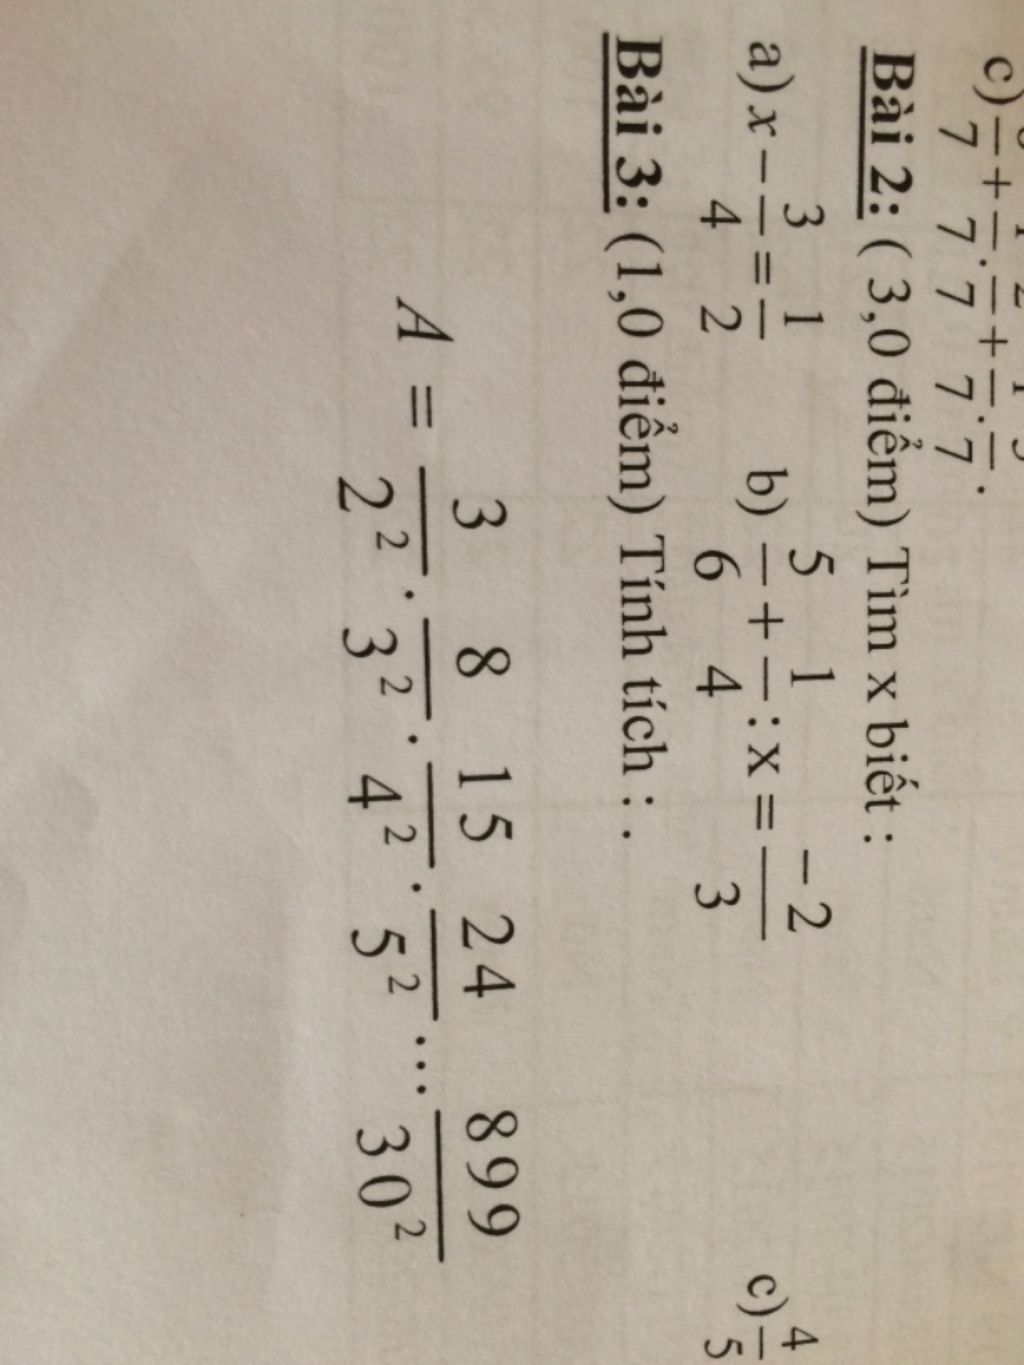 c) /7 + /7 . /7 + /7 . /7 .
Bài 2: ( 3,0 điểm) Tìm x biết :
a) x − 3/4 = 1/2 b) 5/6 + 1/4 : x = −2/3 c) 4/5
Bài 3: (1,0 điểm) Tính tích : .
A = 3/2² . 8/3² . 15/4² . 24/5² ... 899/30²